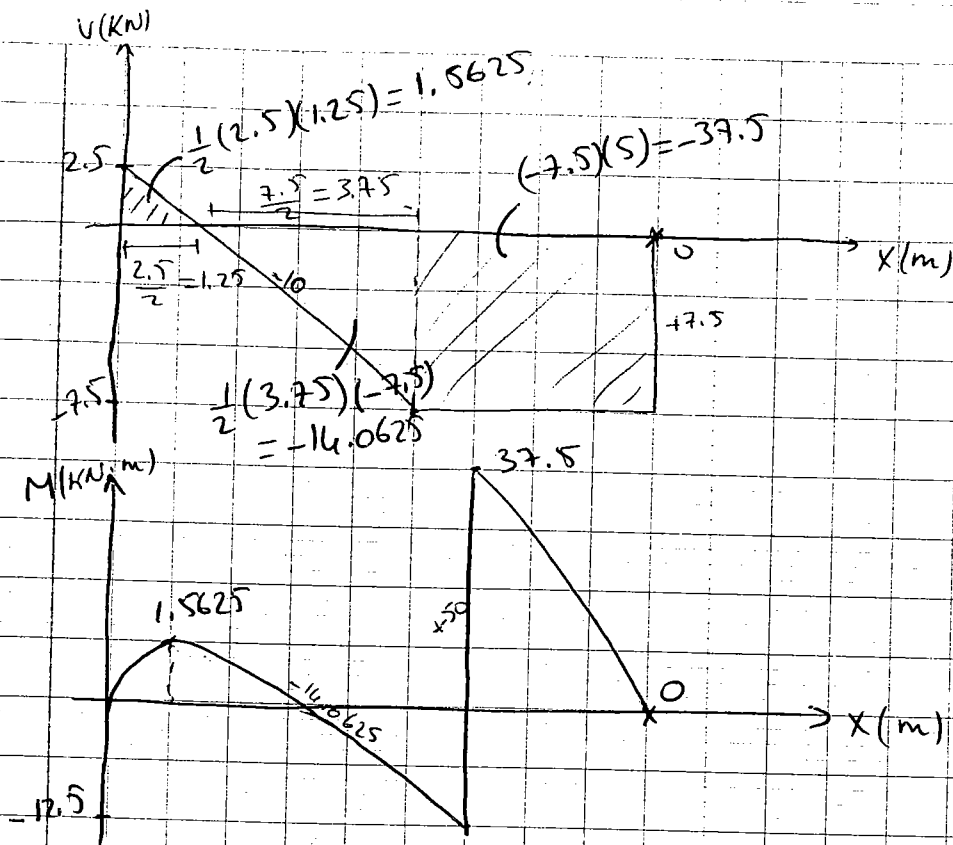 V(KN)
1/2(2.5)(1.25)=1.5625
(-7.5)(5)=-37.5
2.5
7.5/2=3.75
0
X(m)
2.5/2=1.25
-10
+7.5
-7.5
1/2(3.75)(-7.5)
=-14.0625
M(KN.m)
37.5
1.5625
+50
-14.0625
0
X(m)
-12.5